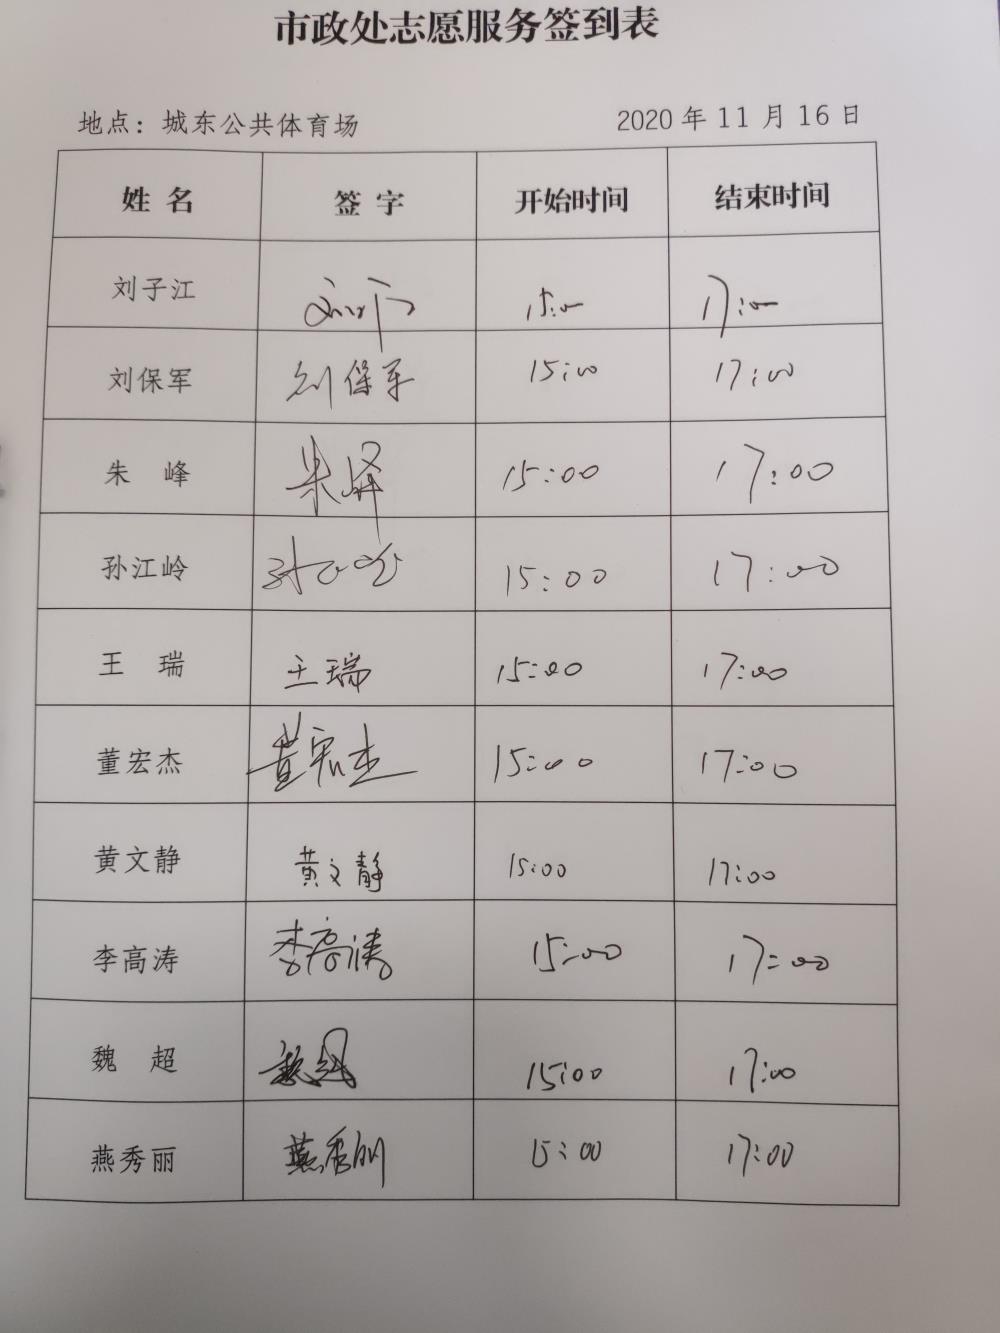 市政处志愿服务签到表
地点：城东公共体育场 2020 年 11 月 16 日
姓 名 签 字 开始时间 结束时间
刘子江 15:00 17:00
刘保军 刘保军 15:00 17:00
朱 峰 朱峰 15:00 17:00
孙江岭 孙江岭 15:00 17:00
王 瑞 王瑞 15:00 17:00
董宏杰 董宏杰 15:00 17:00
黄文静 黄文静 15:00 17:00
李高涛 李高涛 15:00 17:00
魏 超 魏超 15:00 17:00
燕秀丽 燕秀丽 15:00 17:00